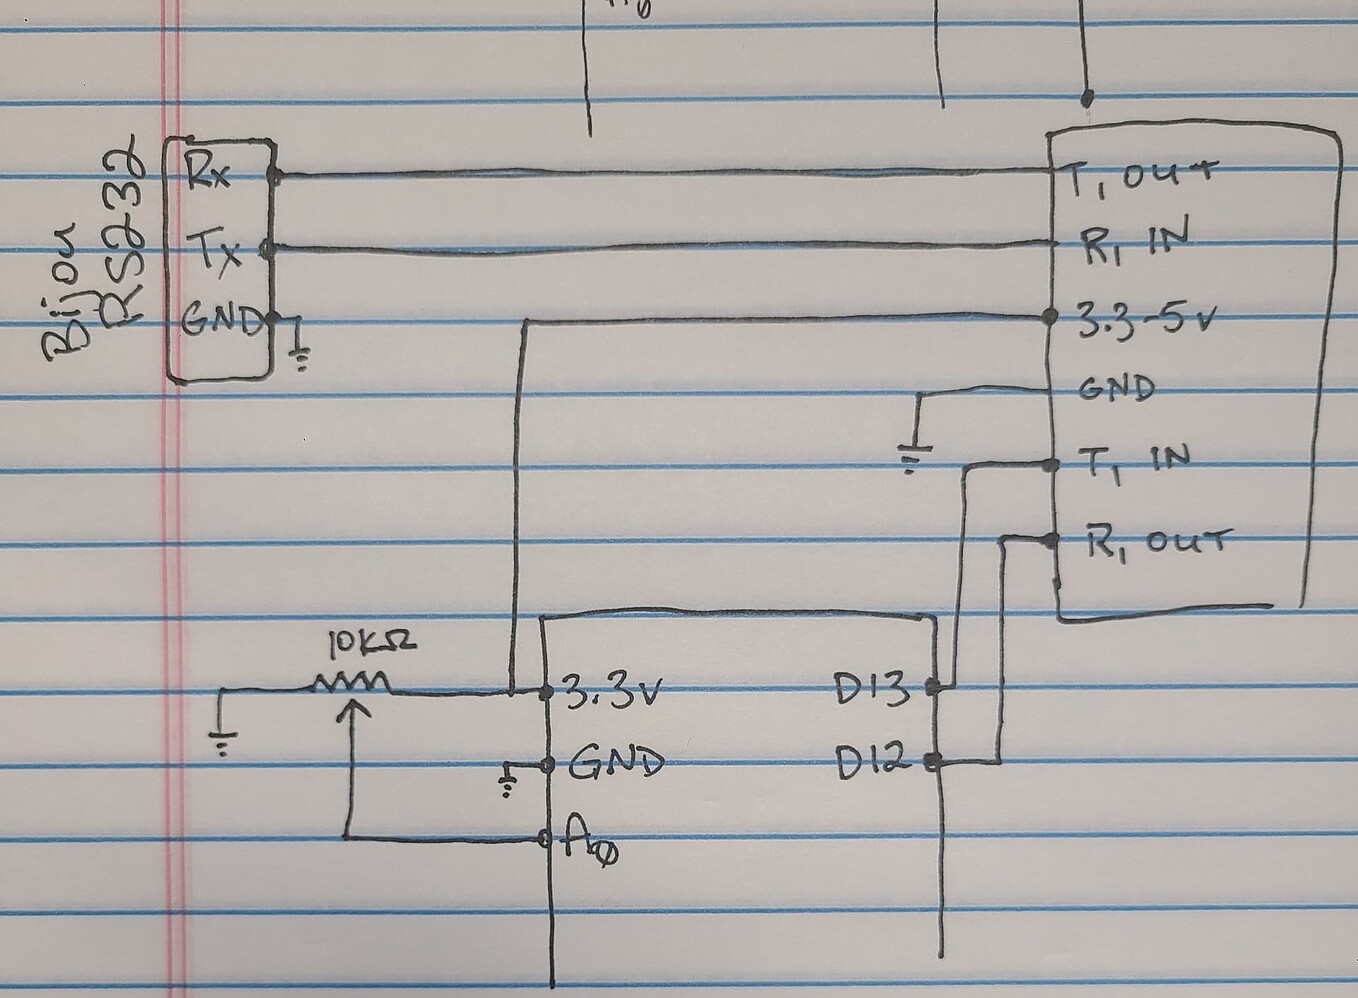 Bijou
RS232
Rx
Tx
GND
T1 OUT
R1 IN
3.3-5v
GND
T1 IN
R1 OUT
10KΩ
3.3v
GND
A0
D13
D12